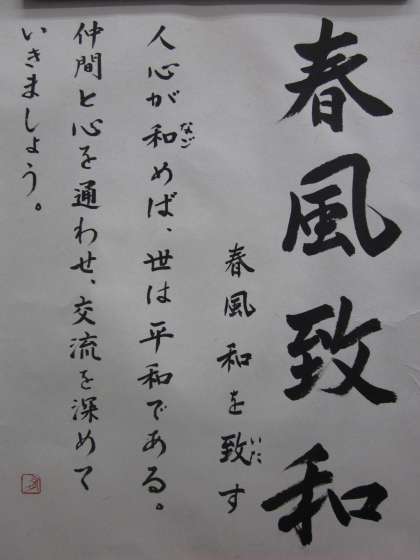 春風致和
春風和を致す
いた
人心が和めば、世は平和である。
なご
仲間と心を通わせ、交流を深めて
いきましょう。